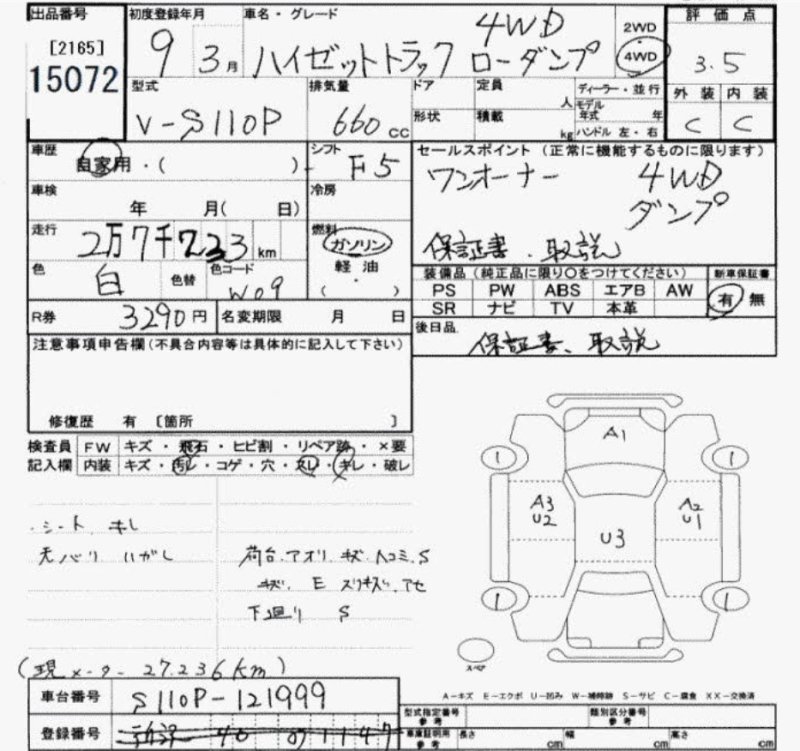 出品番号 初度登録年月 車名・グレード 評価点
[2165]
15072
9 3月 ハイゼットトラック 4WD ローダンプ 2WD 4WD 3.5
型式 排気量 ドア 定員 人 ディーラー・並行 外装 内装
V-S110P 660 CC 形状 積載 kg モデル年式 年 ハンドル 左・右 C C
車歴 シフト セールスポイント (正常に機能するものに限ります)
自家用・( ) F5 ワンオーナー 4WD
車検 冷房 ダンプ
年 月( 日)
走行 燃料
2万7千233km ガソリン 保証書、取説
色 色替 色コード 軽油 装備品(純正品に限り○をつけてください) 新車保証書
白 W09 ( ) PS PW ABS エアB AW 有 無
SR ナビ TV 本革
R券 3290円 名変期限 月 日 後日品
保証書、取説
注意事項申告欄(不具合内容等は具体的に記入して下さい)
修復歴 有 [箇所 ]
検査員 FW キズ・飛石・ヒビ割・リペア跡・×要
記入欄 内装 キズ・汚レ・コゲ・穴・スレ・キレ・破レ
A1
A3 U2
A2 U1
U3
1
1
1
1
スペア
・シート キレ
荷台、アオリ、キズ、ヘコミ、S
下廻り S
(現メーター 27,236km)
A-キズ E-エクボ U-凹み W-補修跡 S-サビ C-腐食 XX-交換済
車台番号 S110P-121999
型式指定番号 参考 類別区分番号 参考
登録番号
車庫証明用 参考 長さ cm 幅 cm 高さ cm